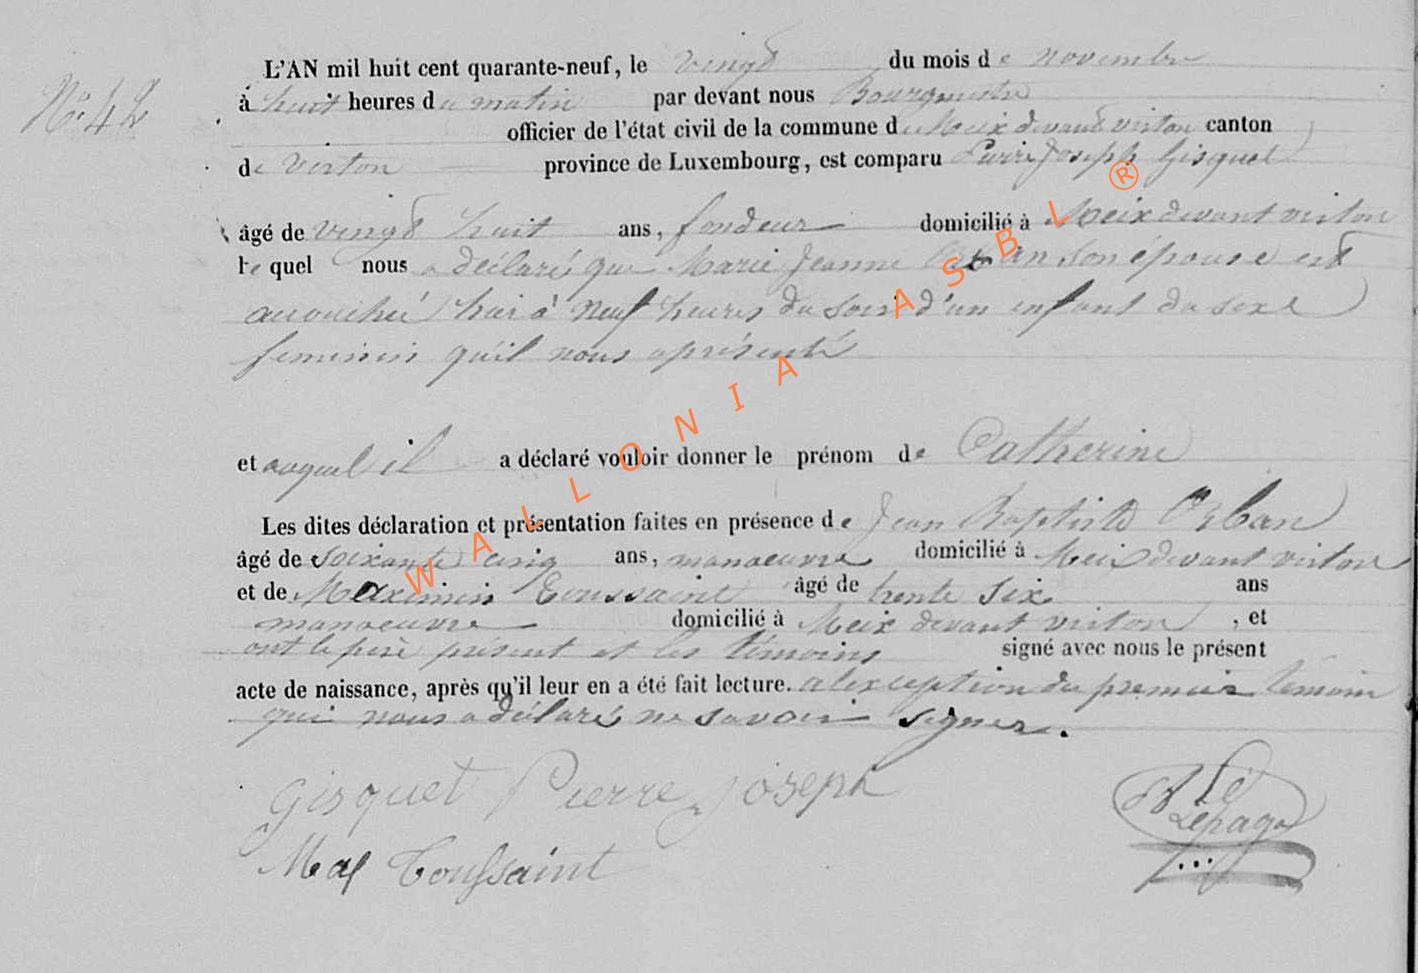 N° 42
L'AN mil huit cent quarante-neuf, le vingt du mois de novembre
à huit heures du matin par devant nous Bourgmestre
officier de l'état civil de la commune de Meix devant virton canton
de virton province de Luxembourg, est comparu Pierre Joseph Gisquet
âgé de vingt huit ans, fondeur domicilié à Meix devant virton
lequel nous a déclaré que Marie Jeanne Orban son épouse est
accouchée hier à neuf heures du soir d'un enfant du sexe
feminin qu'il nous a présenté
et auquel il a déclaré vouloir donner le prénom de Catherine
Les dites déclaration et présentation faites en présence de Jean Baptiste Orban
âgé de soixante cinq ans, manoeuvre domicilié à Meix devant virton
et de Maximin Toussaint âgé de trente six ans
manoeuvre domicilié à Meix devant virton, et
ont le père présent et les témoins signé avec nous le présent
acte de naissance, après qu'il leur en a été fait lecture. a l'exception du premier témoin
qui nous a déclaré ne savoir signer.
Gisquet Pierre Joseph
Max Toussaint
Lepage
WALLONIA ASBL ®